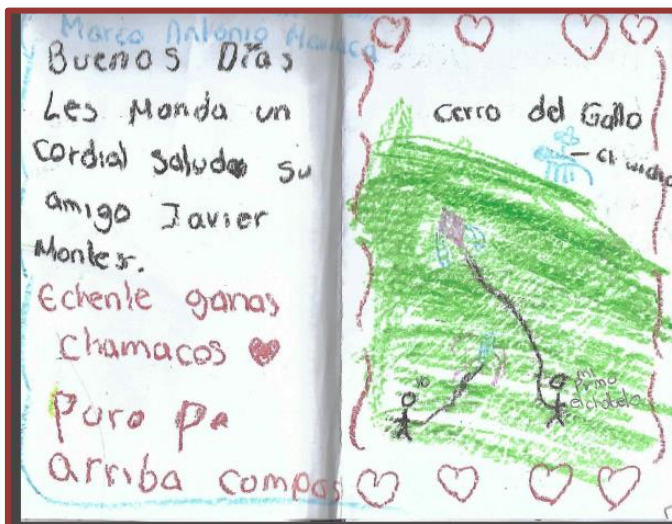 Marco Antonio
Buenos Días
Les Manda un
cordial saludo su
amigo Javier
Montes.
Echenle ganas
chamacos
Puro pa
arriba compas
cerro del Gallo
yo
mi
primo